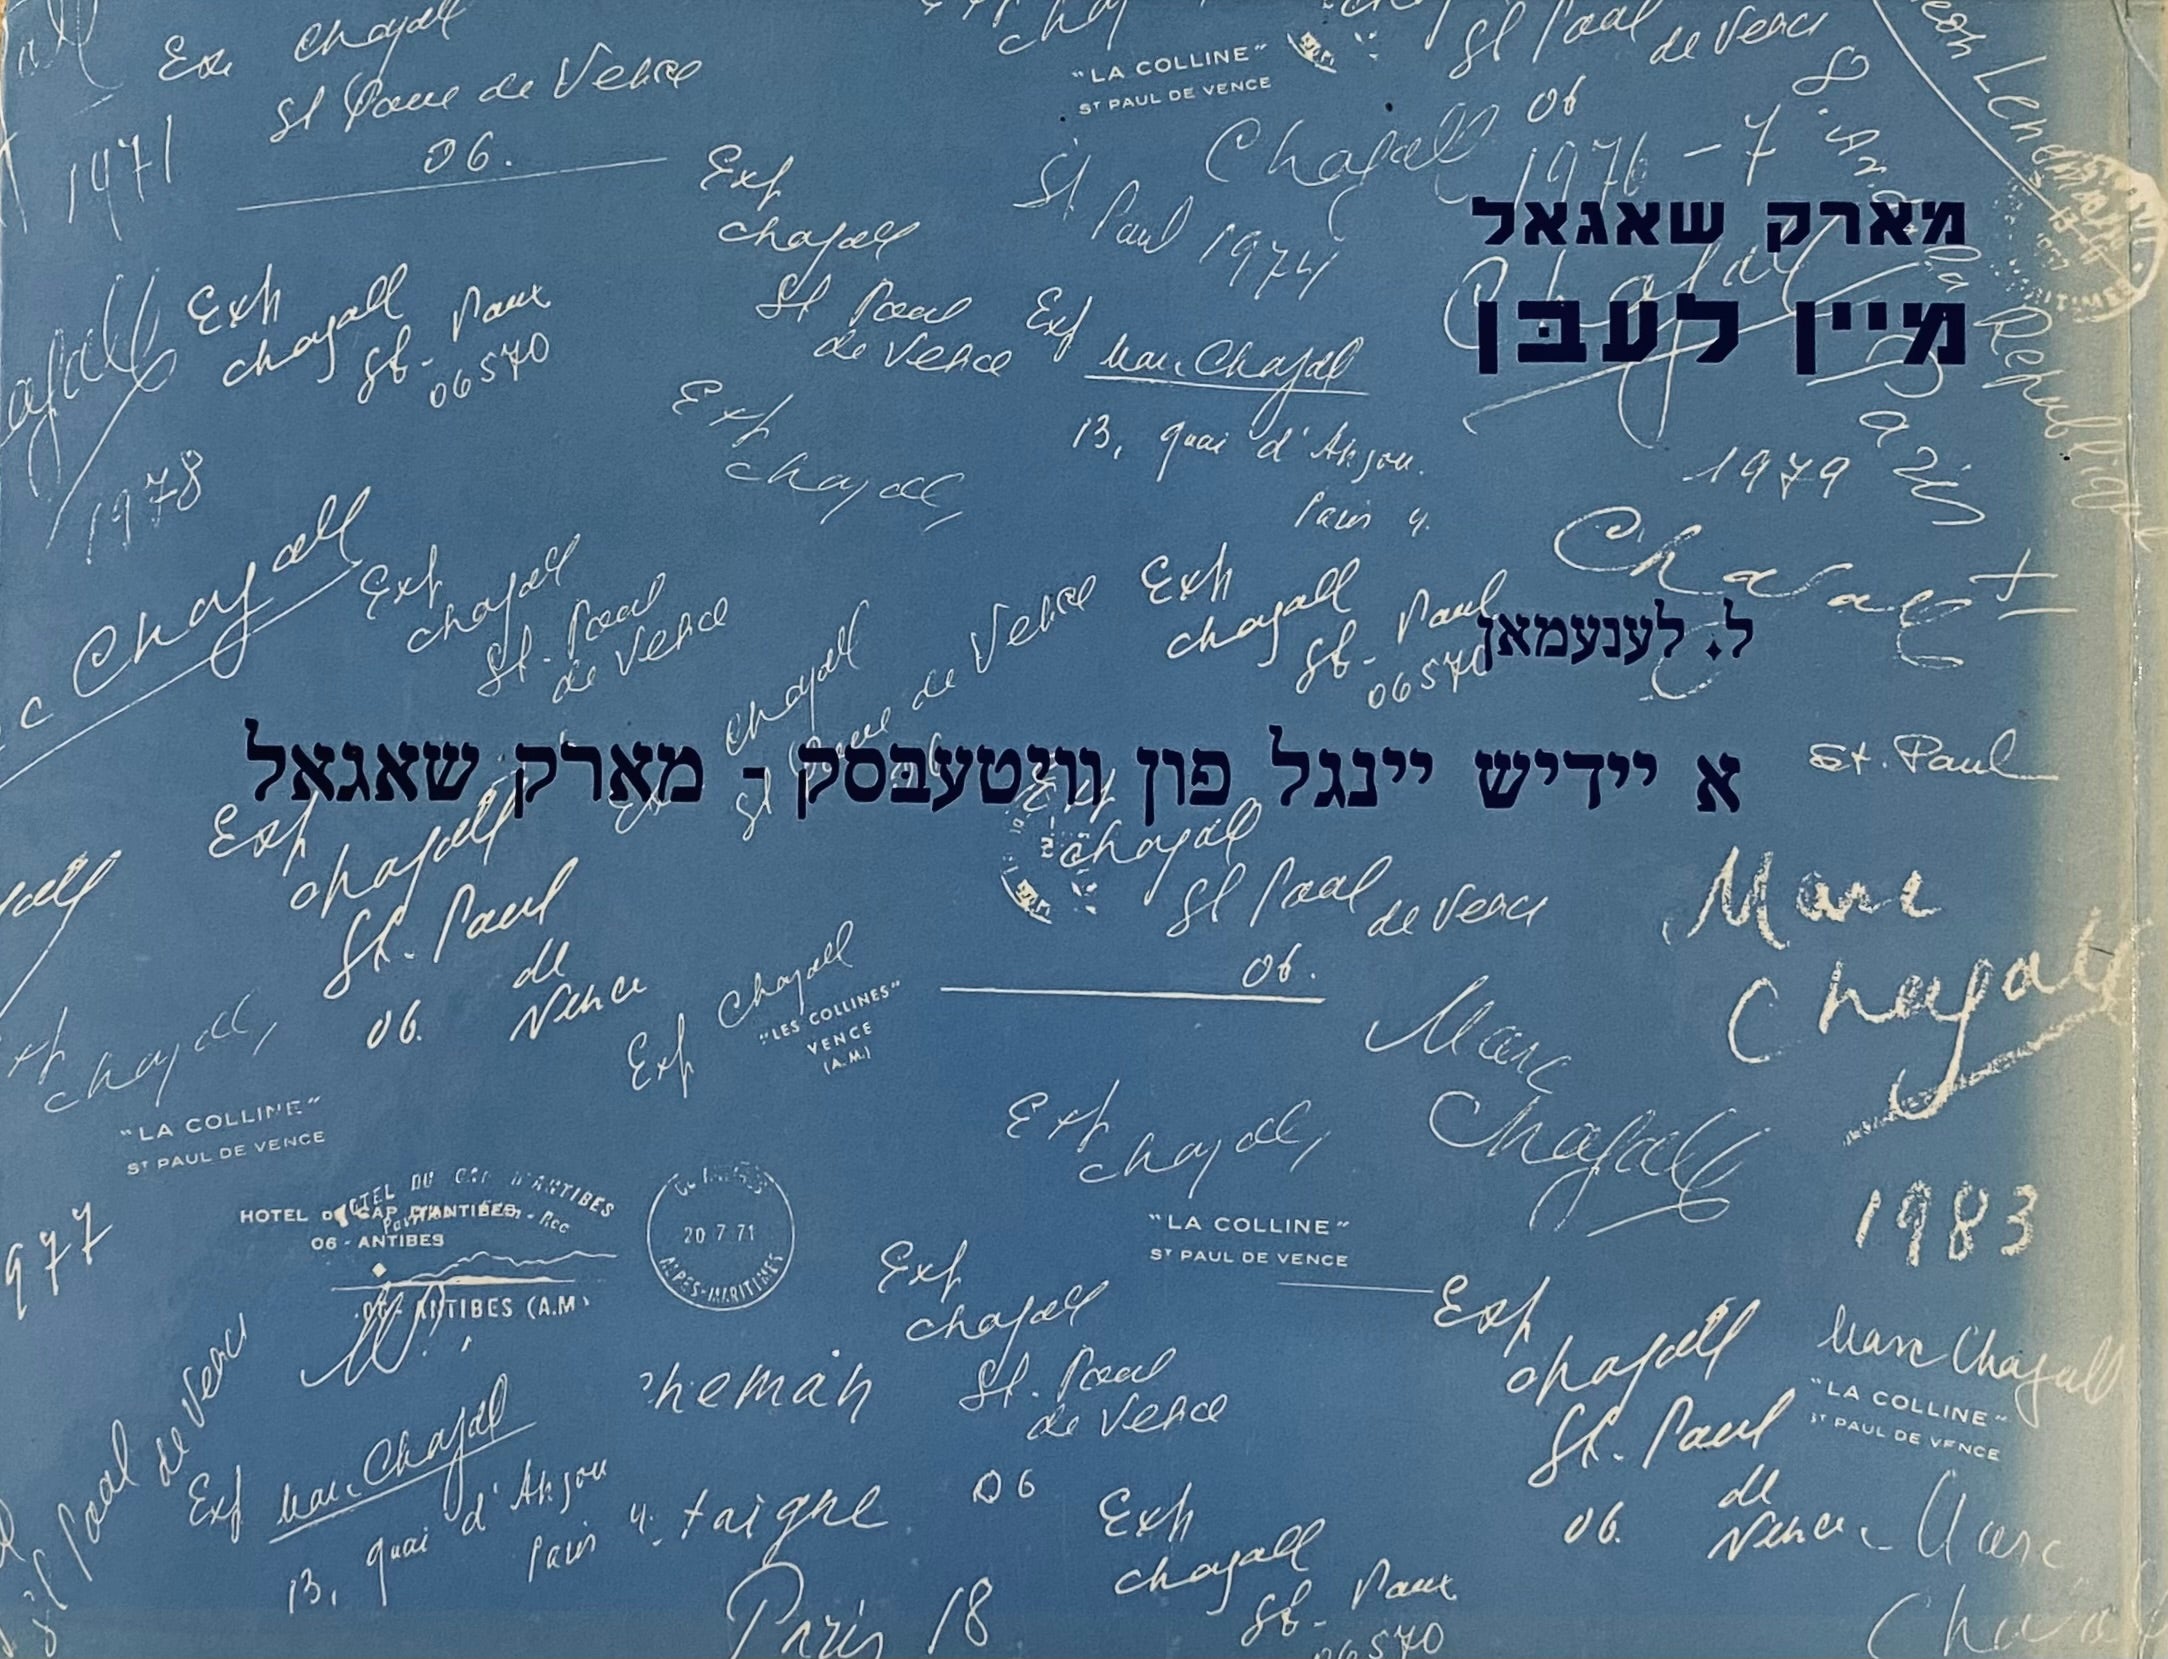 מארק שאגאל
מיין לעבן
ל. לענעמאן
א יידיש יינגל פון וויטעבסק - מארק שאגאל
Exp Chagall
St Paul de Vence
06.
1971
"LA COLLINE"
ST PAUL DE VENCE
St Paul
de Vence
06
Chagall 1976-7
St Paul 1974
Exp
Chagall
St Paul
de Vence
Exp
Chagall
St-Paul
06570
Exp Marc Chagall
13, quai d'Anjou.
Paris 4.
8.
la République
Paris
1979
Exp
Chagall
1978
Chagall
Exp
Chagall
St-Paul
de Vence
Chagall
de Vence
Exp
Chagall
St-Paul
06570
Chagall
St. Paul
Exp
Chagall
St. Paul
de
06. Vence
Chagall
St Paul
de Vence
06.
Marc
Chagall
1983
Exp Chagall
"LES COLLINES"
VENCE
(A.M.)
Marc
Chagall
Chagall
"LA COLLINE"
ST PAUL DE VENCE
Exp
Chagall
"LA COLLINE"
ST PAUL DE VENCE
HOTEL DU CAP D'ANTIBES
HOTEL DU CAP D'ANTIBES
06 - ANTIBES
ANTIBES (A.M.)
20 7 71
ALPES-MARITIMES
977
St Paul de Vence
Exp
Chagall
St. Paul
de Vence
06
neman
Exp Marc Chagall
13, quai d'Anjou
Paris 4.
taigne
Paris 18
Exp
Chagall
St. Paul
de
06. Vence
Marc Chagall
"LA COLLINE"
ST PAUL DE VENCE
Exp
Chagall
St-Paul
06570
Marc